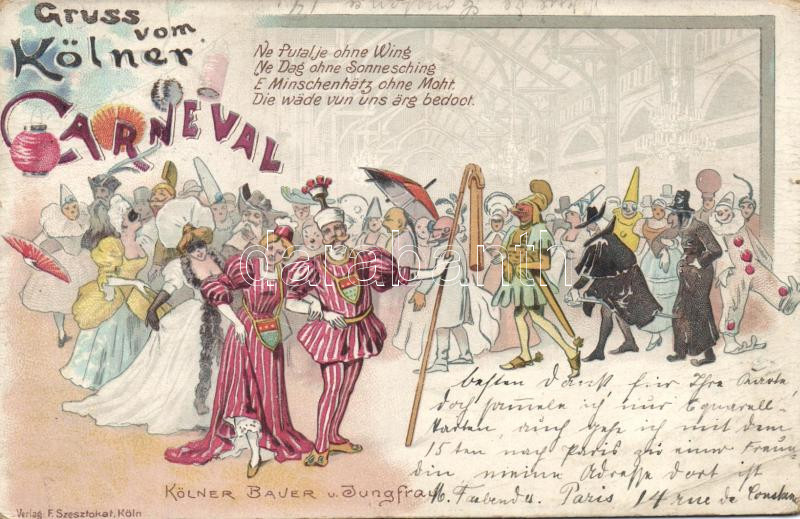 Gruss
vom
Kölner
CARNEVAL
Ne Putalje ohne Wing
Ne Dag ohne Sonnesching
E Minschenhätz ohne Moht.
Die wäde vun uns ärg bedoot.
darabanth
besten Dank für Ihre Karte,
doch sammele ich nur Aquarell-
karten, auch gehe ich mit dem
15ten nach Paris zu einer Freun-
din meine Adresse dort ist
Paris 14 rue de Constan
KÖLNER BAUER u. Jungfrau
Verlag F. Szesztokat, Köln